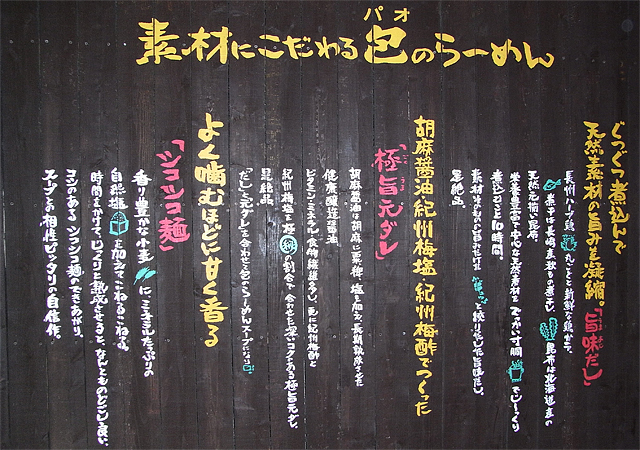 素材にこだわる包のらーめん
パオ
ぐつぐつ煮込んで
天然素材の旨みを凝縮。「旨味だし」
長州ハーブ鶏 丸ごとと新鮮な鶏ガラ。
煮干は長崎産の煮干し 昆布は北海道産の
天然元揃い昆布。
栄養豊富で安心な天然素材を でっかい寸胴でじっくり
煮込むこと10時間。
素材そのものの旨みだけを ギュッと絞り出した旨味だし。
超絶品
胡麻醤油 紀州梅塩 紀州梅酢でつくった
「極旨元ダレ」
胡麻醤油は胡麻に更に 塩を加え長期熟成させた
健康醸造醤油
ビタミン・ミネラル・食物繊維を多く、更に紀州梅酢と
紀州梅塩を極 の割合で合わせた深いコクのある極旨元ダレ。
超絶品
「だし」と元ダレを合わせて包のらーめんスープになる
よく噛むほどに甘く香る
「シコシコ麺」
香り豊かな小麦 にミネラルたっぷりの
自然塩 を加えてこねるこねる。
時間をかけて、じっくりと熟成させると、なんとものどごし良い、
コシのあるシコシコ麺のできあがり。
スープとの相性ピッタリの自信作。